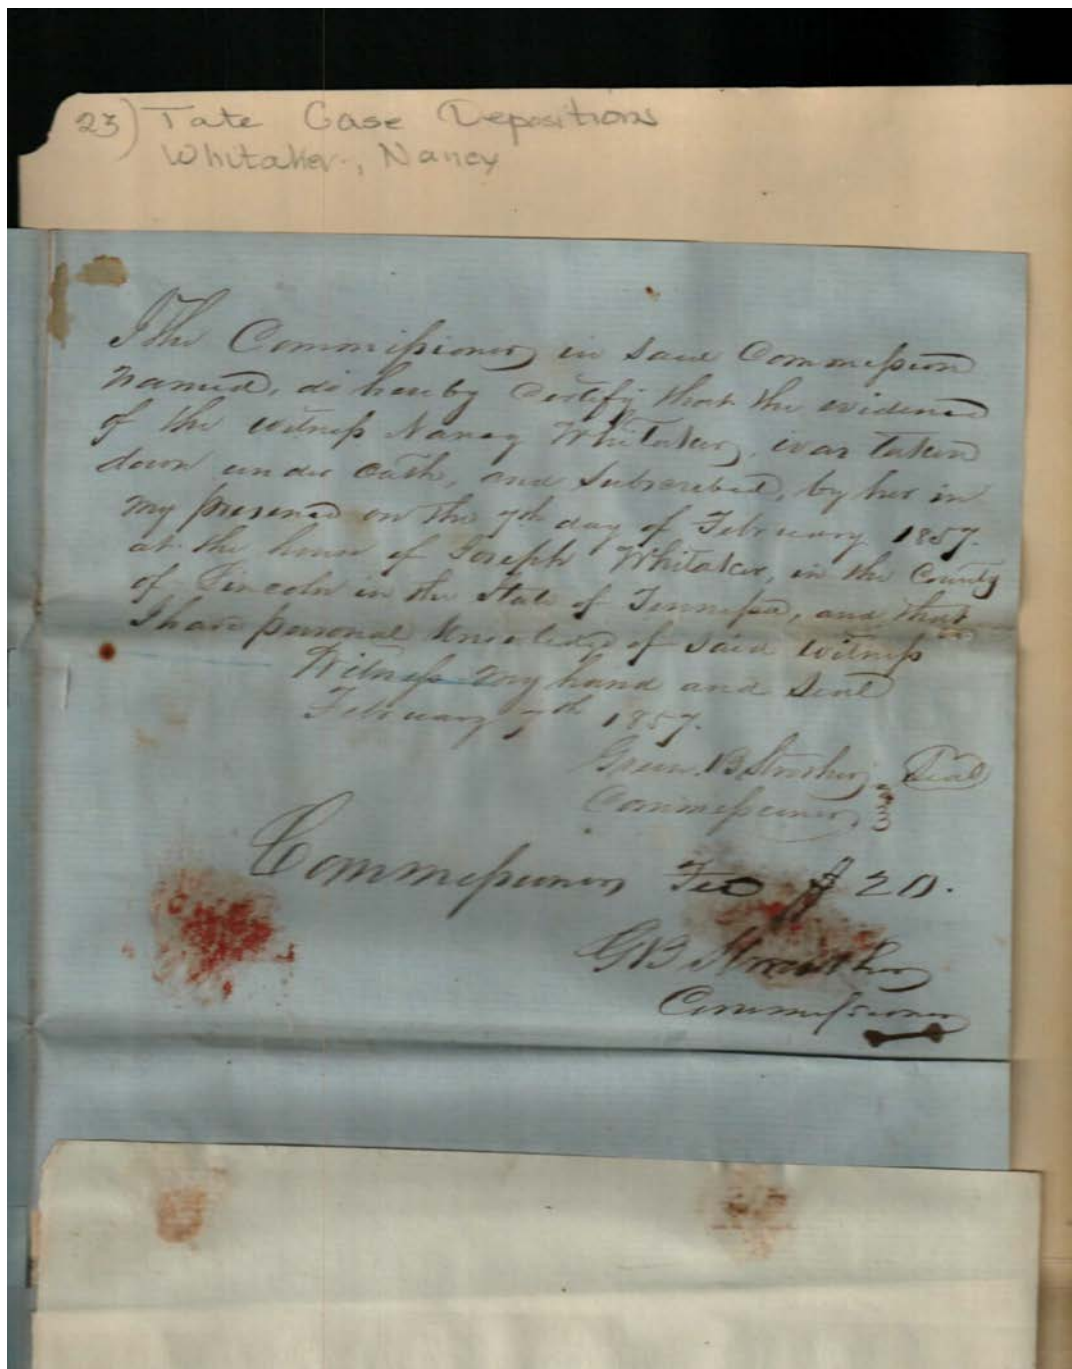 23) Tate Case Depositions
Whitaker, Nancy
I the Commissioner in said Commission
named, do hereby Certify that the evidence
of the witness Nancy Whitaker, was taken
down under oath, and Subscribed, by her in
my presence on the 7th day of February 1857.
at the house of Joseph Whitaker, in the County
of Lincoln in the State of Tennessee, and that
I have personal knowledge of said witness
Witness my hand and Seal
February 7th 1857.
Green B Strother Seal
Commissioner
Commissioners Fee $ 20.
GB Strother
Commissioner